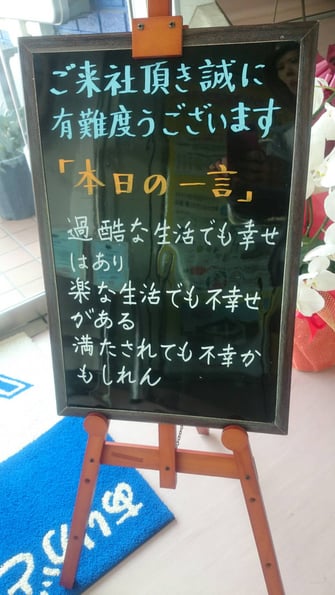 ご来社頂き誠に
有難度うございます
「本日の一言」
過酷な生活でも幸せ
はあり
楽な生活でも不幸せ
がある
満たされても不幸か
もしれん